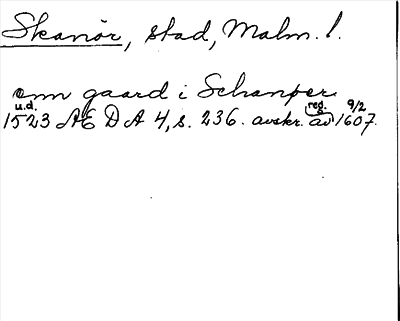 Skanör, stad, Malm. l.
om gaard i Schanper
u.d. reg. 9/2
1523 AE D A 4, s. 236. avskr. av 1607.